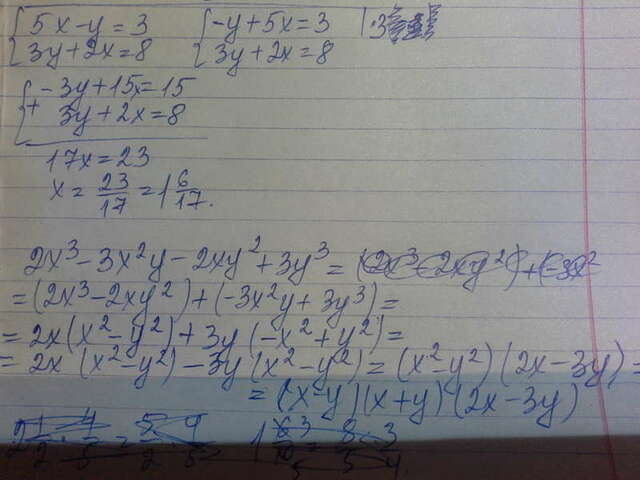 {5x-y=3 {-y+5x=3 |·3
{3y+2x=8 {3y+2x=8
{-3y+15x=15
+ 3y+2x=8
17x=23
x=23/17=1 6/17.
2x³-3x²y-2xy²+3y³=(2x³-2xy²)+(-3x²
=(2x³-2xy²)+(-3x²y+3y³)=
=2x(x²-y²)+3y(-x²+y²)=
=2x(x²-y²)-3y(x²-y²)=(x²-y²)(2x-3y)=
=(x-y)(x+y)(2x-3y)